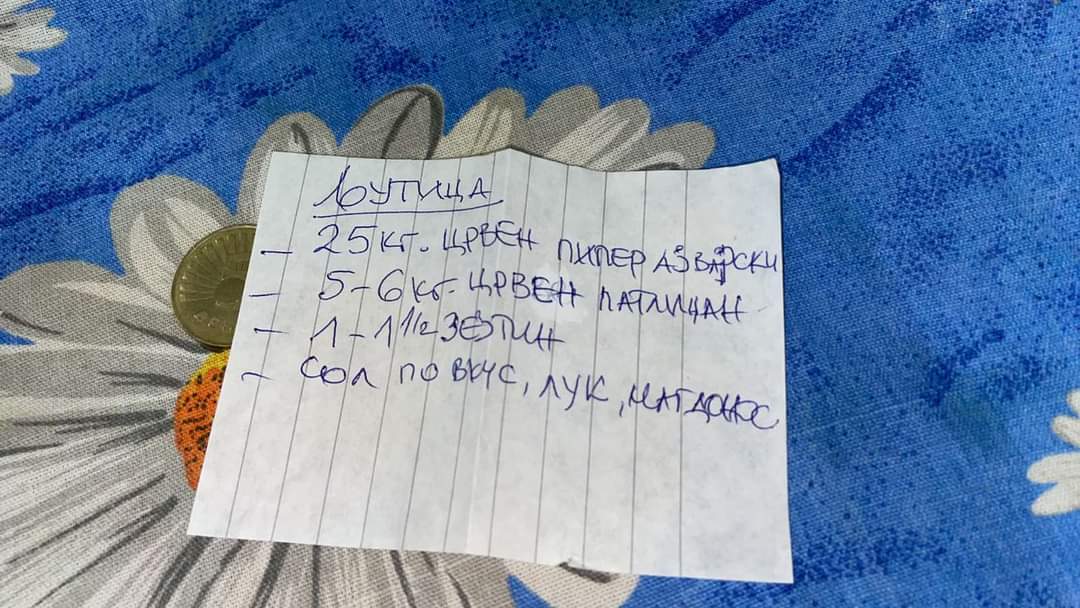 ЛУТИЦА
- 25 кг. ЦРВЕН ПИПЕР АЗВАРСКИ
- 5-6 кг. ЦРВЕН ПАТЛИЦАН
- 1-1 1/2 ЗЕЈТИН
- СОЛ ПО ВКУС, ЛУК, МАГДОНОС